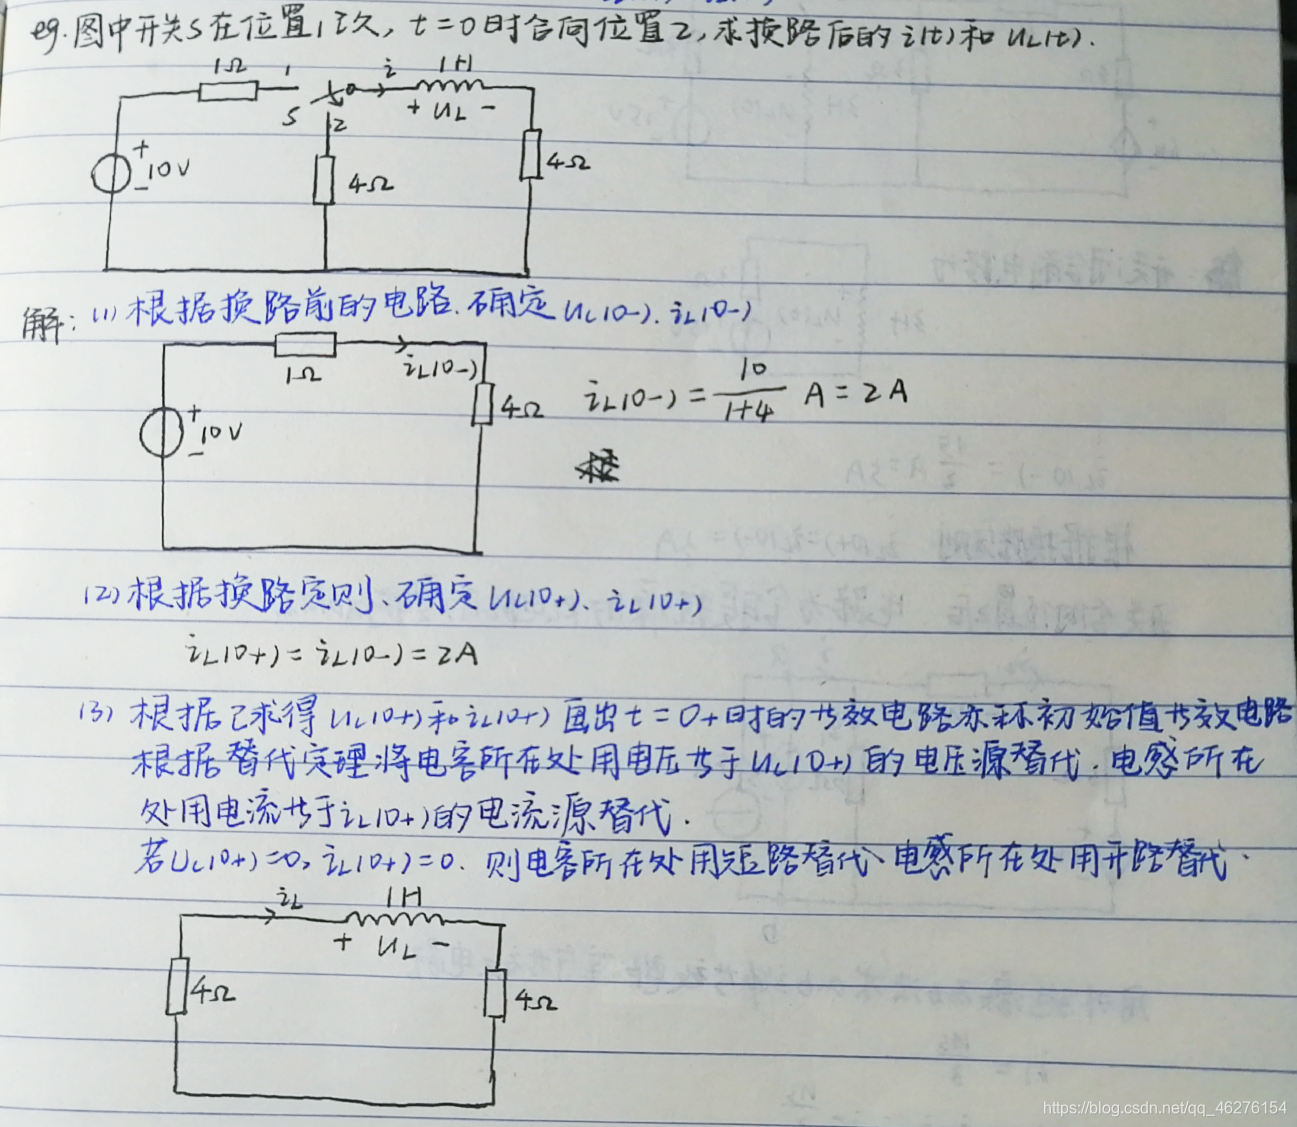 eg.图中开关S在位置1已久，t=0时合向位置2，求换路后的i(t)和uL(t).
1Ω 1 i 1H
S 2 + uL -
+ 10V - 4Ω 4Ω
解：(1)根据换路前的电路.确定uc(0-).iL(0-)
1Ω iL(0-)
+ 10V - 4Ω iL(0-)=10/(1+4) A=2A
(2)根据换路定则、确定uc(0+).iL(0+)
iL(0+)=iL(0-)=2A
(3)根据已求得uc(0+)和iL(0+)画出t=0+时的等效电路亦称初始值等效电路
根据替代定理将电容所在处用电压等于uc(0+)的电压源替代.电感所在
处用电流等于iL(0+)的电流源替代.
若Uc(0+)=0，iL(0+)=0.则电容所在处用短路替代、电感所在处用开路替代.
iL 1H
+ uL -
4Ω 4Ω
https://blog.csdn.net/qq_46276154